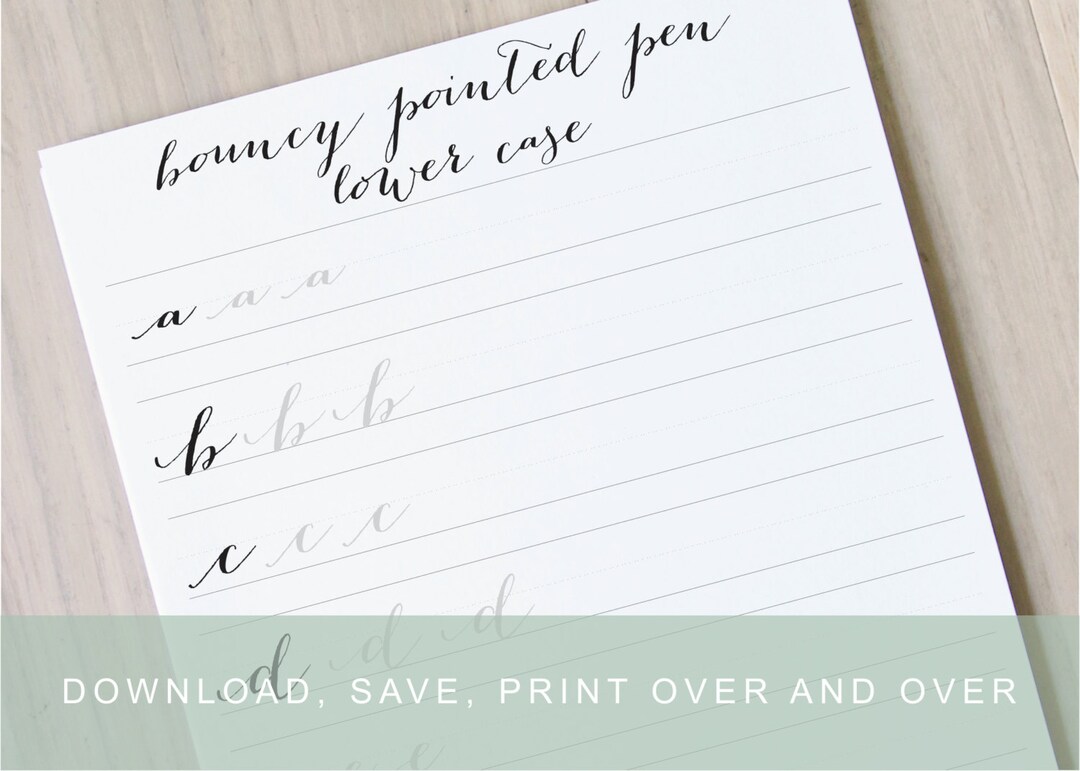 bouncy pointed pen
lower case
a a a
b b b
c c c
d d d
e e
DOWNLOAD, SAVE, PRINT OVER AND OVER